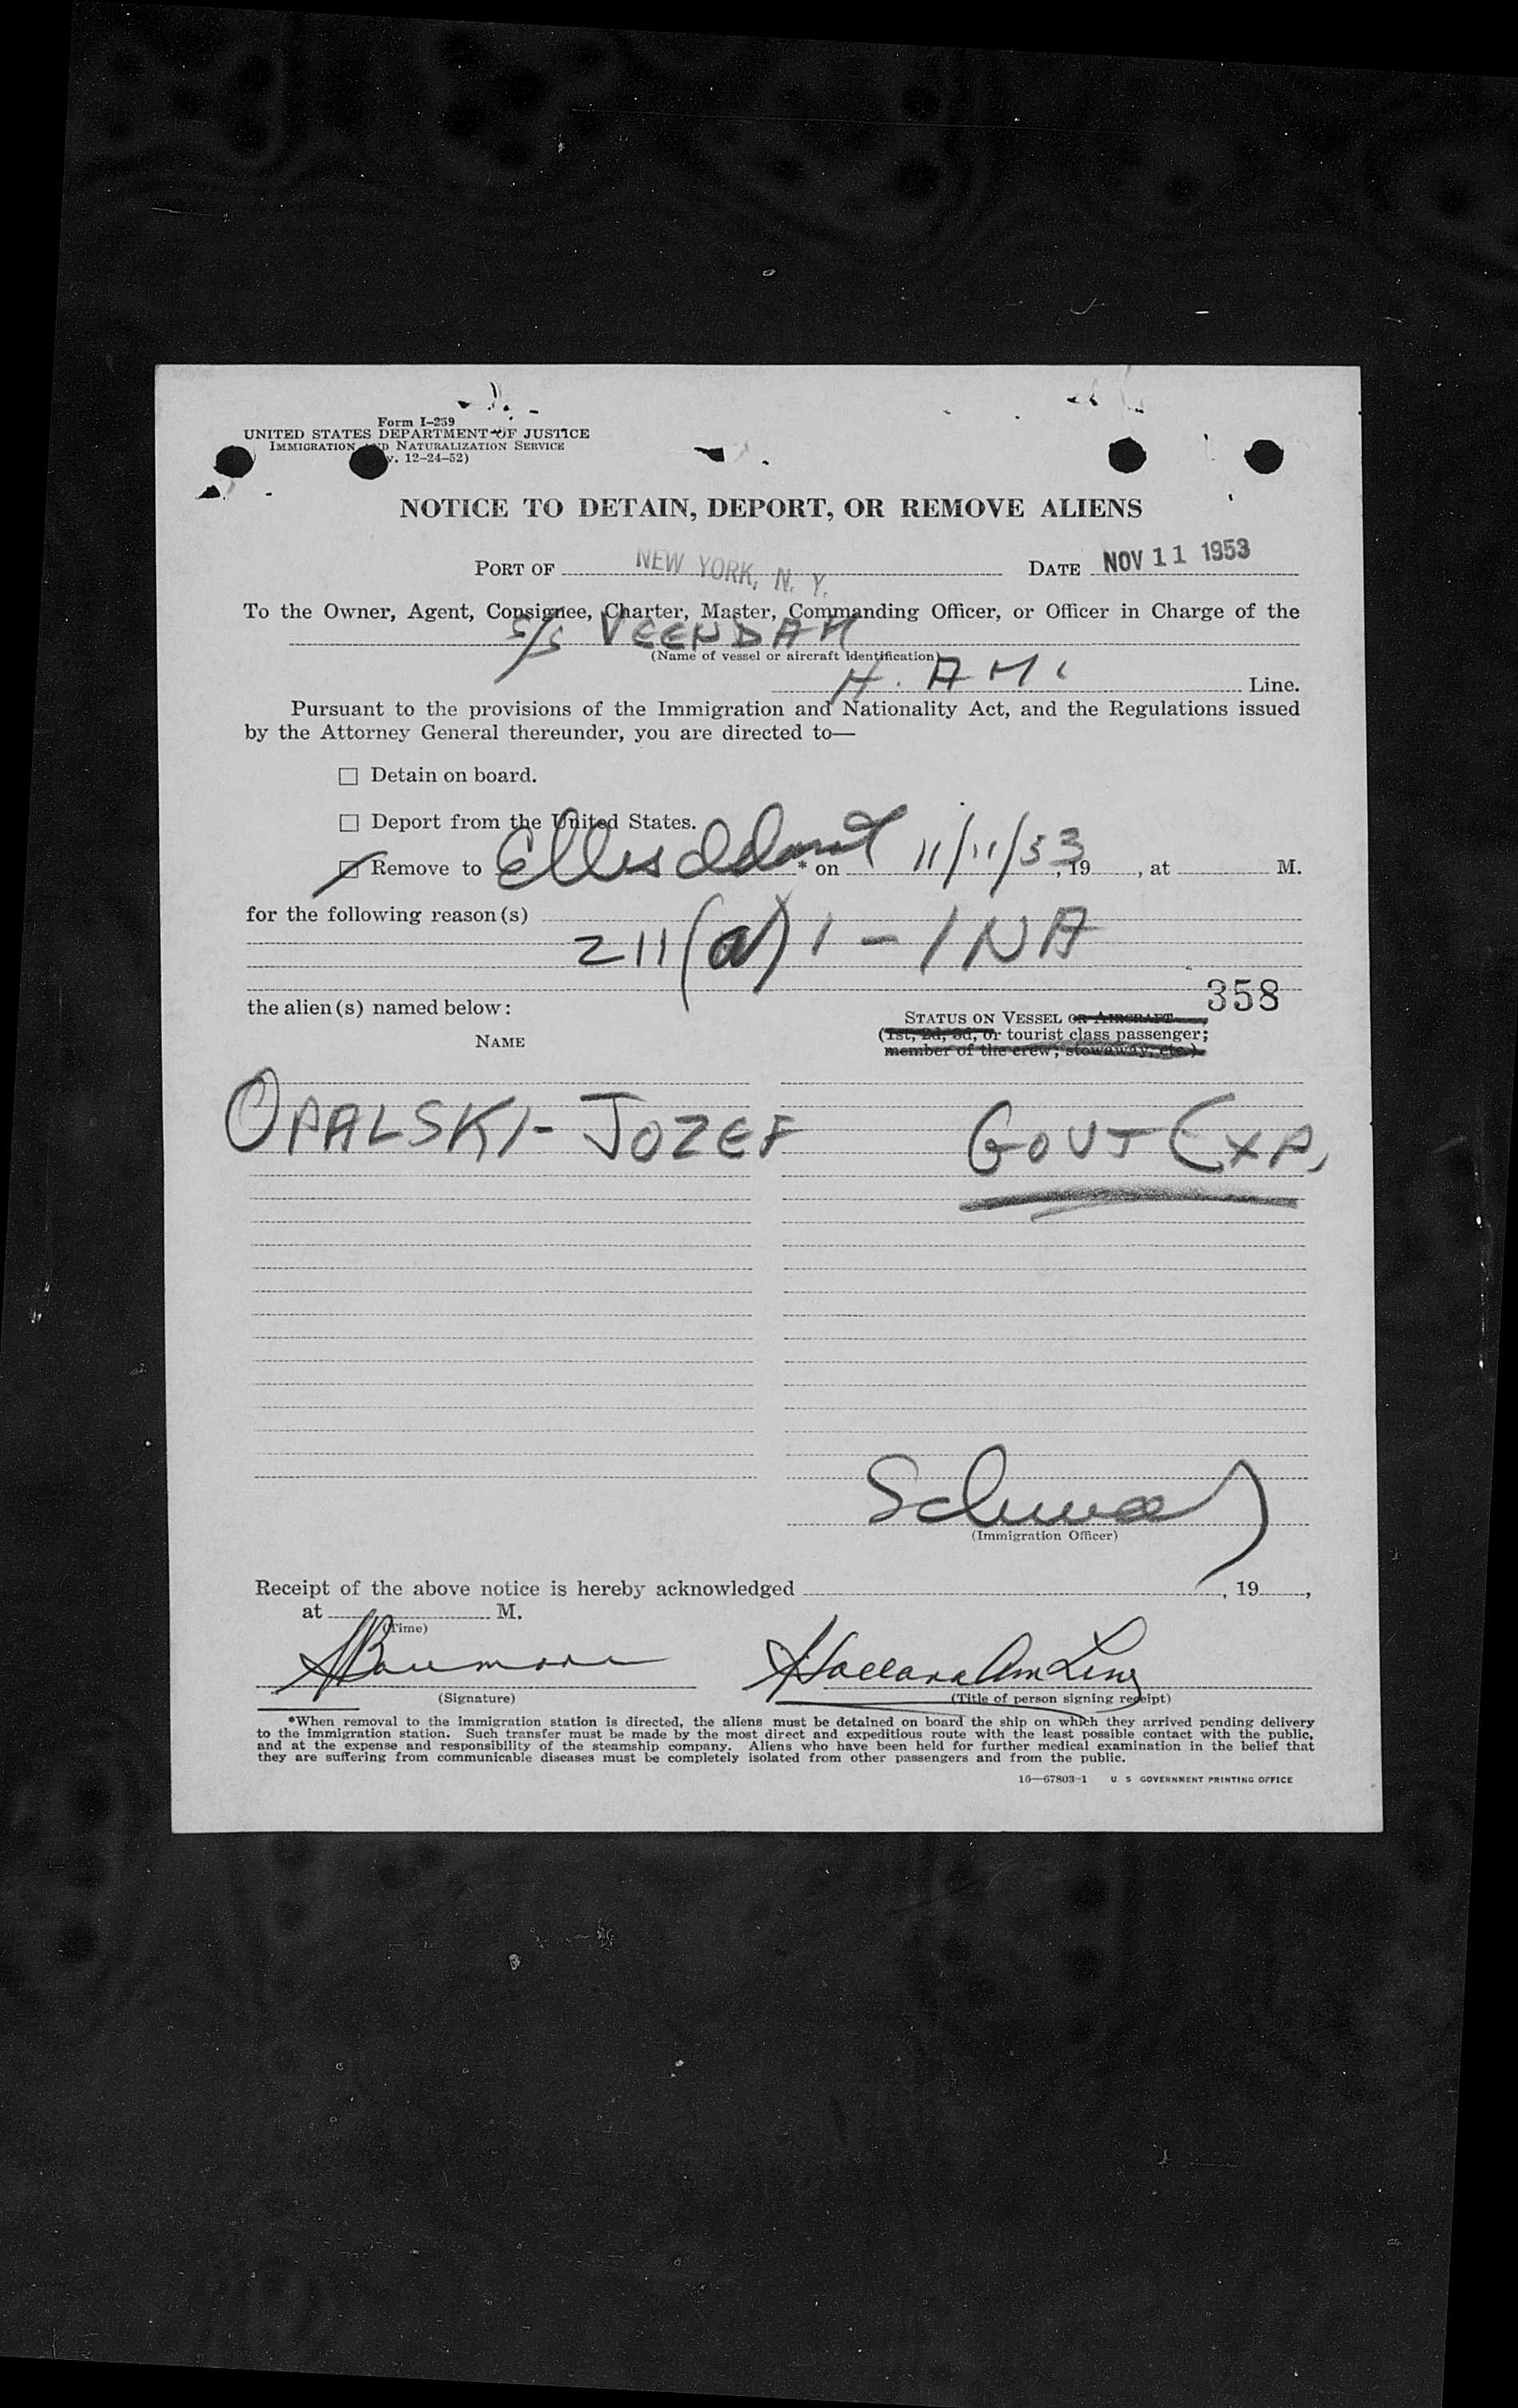 Form I-259
UNITED STATES DEPARTMENT OF JUSTICE
IMMIGRATION AND NATURALIZATION SERVICE
v. 12-24-52)
NOTICE TO DETAIN, DEPORT, OR REMOVE ALIENS
PORT OF NEW YORK, N. Y. DATE NOV 11 1953
To the Owner, Agent, Consignee, Charter, Master, Commanding Officer, or Officer in Charge of the
S/S VEENDAM
(Name of vessel or aircraft identification)
H. AM. Line.
Pursuant to the provisions of the Immigration and Nationality Act, and the Regulations issued
by the Attorney General thereunder, you are directed to—
☐ Detain on board.
☐ Deport from the United States.
☐ Remove to Ellis Island * on 11/11/53, 19 , at M.
for the following reason(s)
211(a)1 - INA
358
the alien(s) named below:
STATUS ON VESSEL OR AIRCRAFT
NAME
(1st, 2d, 3d, or tourist class passenger;
member of the crew; stowaway, etc.)
OPALSKI - JOZEF GOVT EXP,
(Immigration Officer)
Receipt of the above notice is hereby acknowledged , 19 ,
at M.
(Time)
Holland Am Line
(Signature) (Title of person signing receipt)
*When removal to the immigration station is directed, the aliens must be detained on board the ship on which they arrived pending delivery
to the immigration station. Such transfer must be made by the most direct and expeditious route with the least possible contact with the public,
and at the expense and responsibility of the steamship company. Aliens who have been held for further medical examination in the belief that
they are suffering from communicable diseases must be completely isolated from other passengers and from the public.
16—67803-1 U S GOVERNMENT PRINTING OFFICE